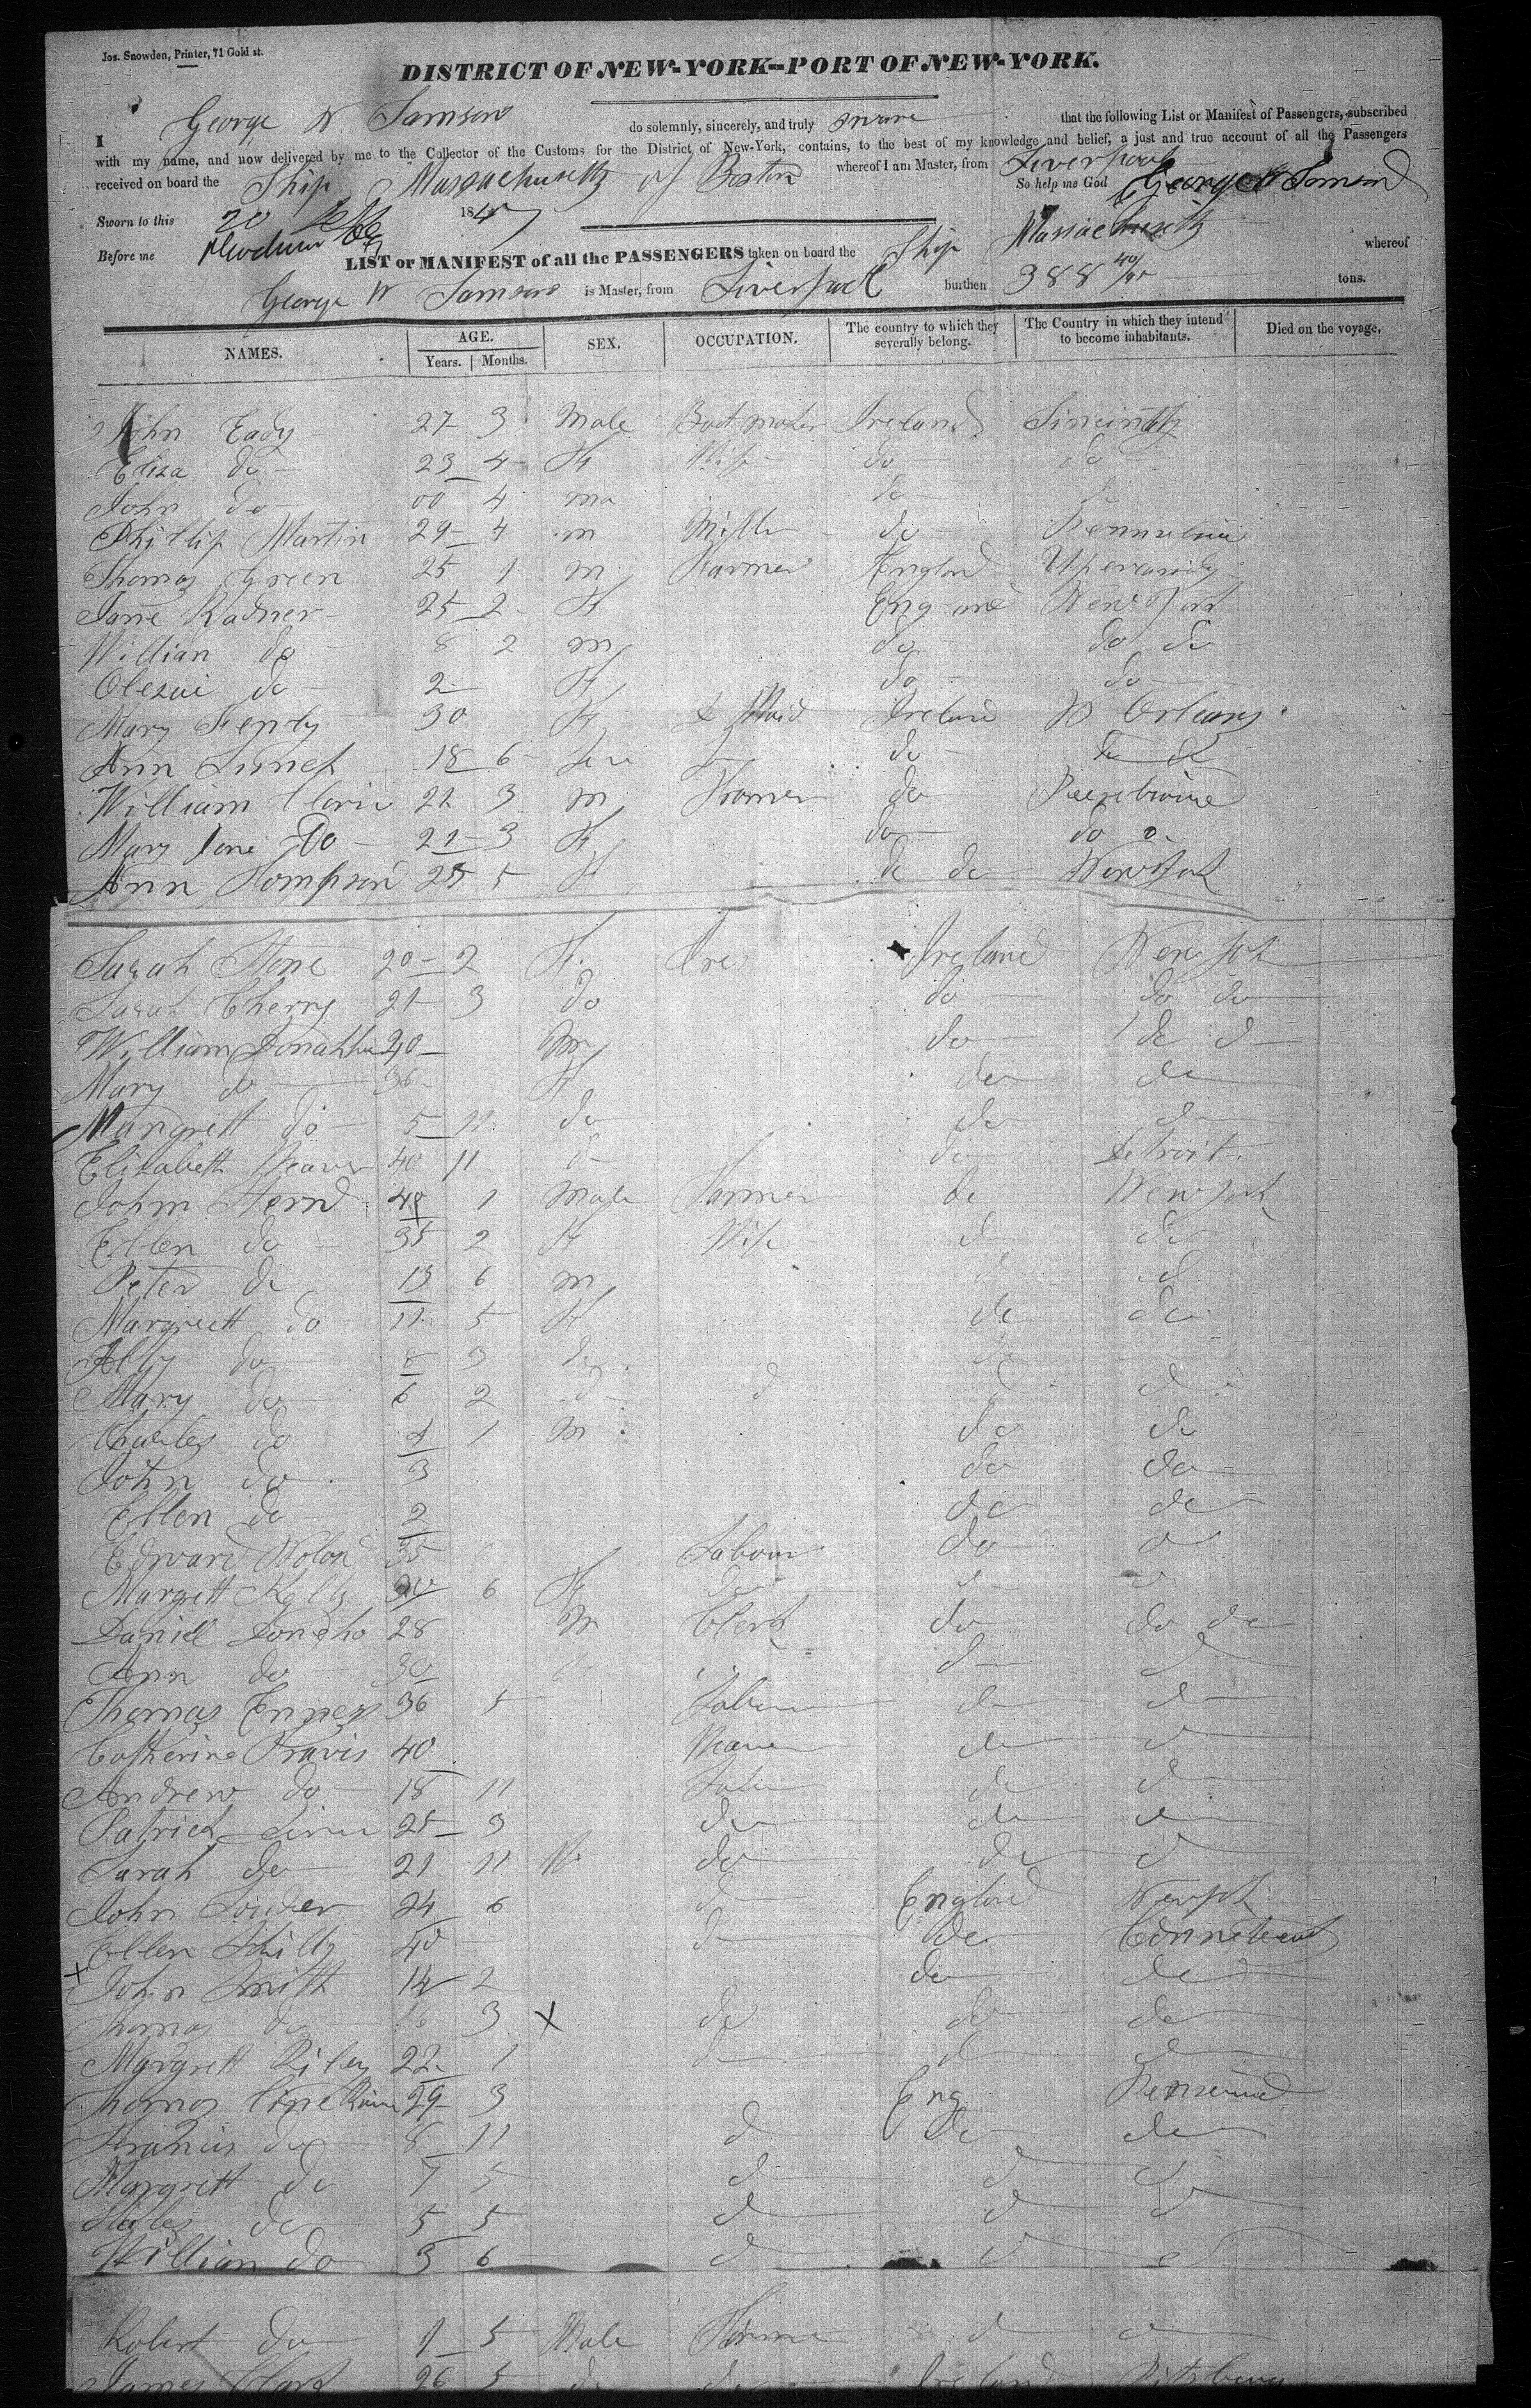 Jos. Snowden, Printer, 71 Gold st.
DISTRICT OF NEW-YORK--PORT OF NEW-YORK.
I George W Samson do solemnly, sincerely, and truly swear that the following List or Manifest of Passengers, subscribed
with my name, and now delivered by me to the Collector of the Customs for the District of New-York, contains, to the best of my knowledge and belief, a just and true account of all the Passengers
received on board the Ship Massachusetts of Boston whereof I am Master, from Liverpool
So help me God George W Samson
Sworn to this 20 1847
Before me
LIST or MANIFEST of all the PASSENGERS taken on board the Ship Massachusetts whereof
George W Samson is Master, from Liverpool burthen 388 40/95 tons.
NAMES. AGE. Years. Months. SEX. OCCUPATION. The country to which they severally belong. The Country in which they intend to become inhabitants. Died on the voyage.
John Eady 27 3 Male Bootmaker Ireland Sincinatty
Eliza do 23 4 F Wife do do
John do 00 4 ma do do
Phillip Martin 29 4 m Miller do
Thomas Green 25 1 m Farmer England
Jane Radner 25 2 F England New York
Willian do 8 2 m do do do
do 2 F do do
Mary 30 F Maid Ireland N Orleans
Ann 18 6 do do do
William 22 3 m do
Mary Jane Do 21 3 F do do
Ann Tompson 25 5 F do do New York
Sarah Stone 20 2 F Ireland New York
Sarah Cherry 21 3 do do do do
William Donahhu 40 m do do d
Mary do 36 F do do
Margrett do 5 11 do do do
Elizabeth Weaver 40 11 d do Detroit
John Hernd 48 1 Male Farmer do New York
Ellen do 35 2 F Wife d do
Peter do 13 6 m d d
Margrett do 11 5 F do do
Ally do 8 3 do do
Mary do 6 2 d d d d
Charles do 4 1 m do do
John do 3 do do
Ellen do 2 do do
Edward Nolan 35 Labour do d
Margrett Kelly 30 6 F do d d
Daniel Donoho 28 m Clerk do do do
Ann do 30 d d
Thomas Enness 36 5 Labour d d
Catherine Travis 40 Weaver do d
Andrew do 18 11 Labr do d
Patrick 25 3 do do d
Sarah do 21 11 do do d
John Souder 24 6 d England New York
Ellen 40 d do Connetecut
x John Smith 14 2 do do
Thomas do 16 3 x do do do
Margrett Riley 22 1 d d d
Thomas 29 3 Eng
Francis do 8 11 d do do
Margrett do 7 5 d d d
do 5 5 d d d
Willian do 3 6 d d d
Robert do 1 5 Male d d
James Clark 26 5 do do Ireland Pitsburg